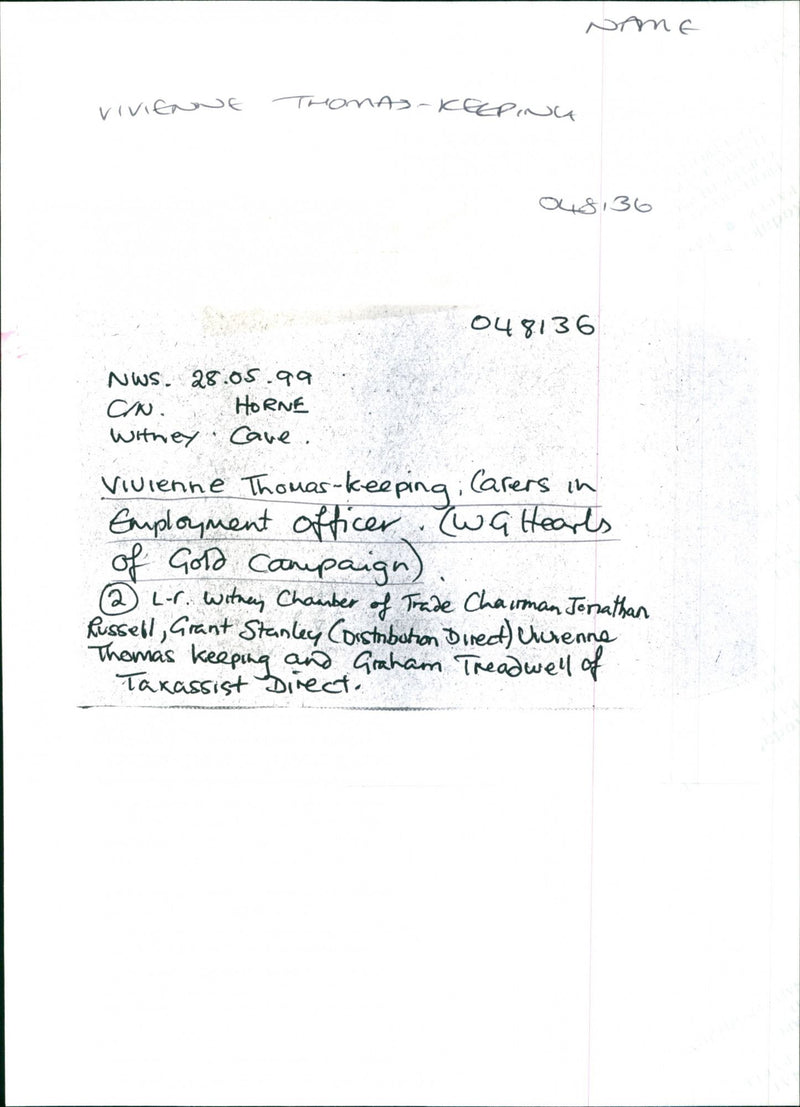 NAME
VIVIENNE THOMAS-KEEPING
048136
048136
NWS. 28.05.99
C/N. HORNE
Witney Cave.
Vivienne Thomas-keeping, Carers in
Employment officer. (WG Hearts
of Gold campaign).
② L-r. Witney Chamber of Trade Chairman Jonathan
Russell, Grant Stanley (Distribution Direct) Vivienne
Thomas keeping and Graham Treadwell of
Taxassist Direct.